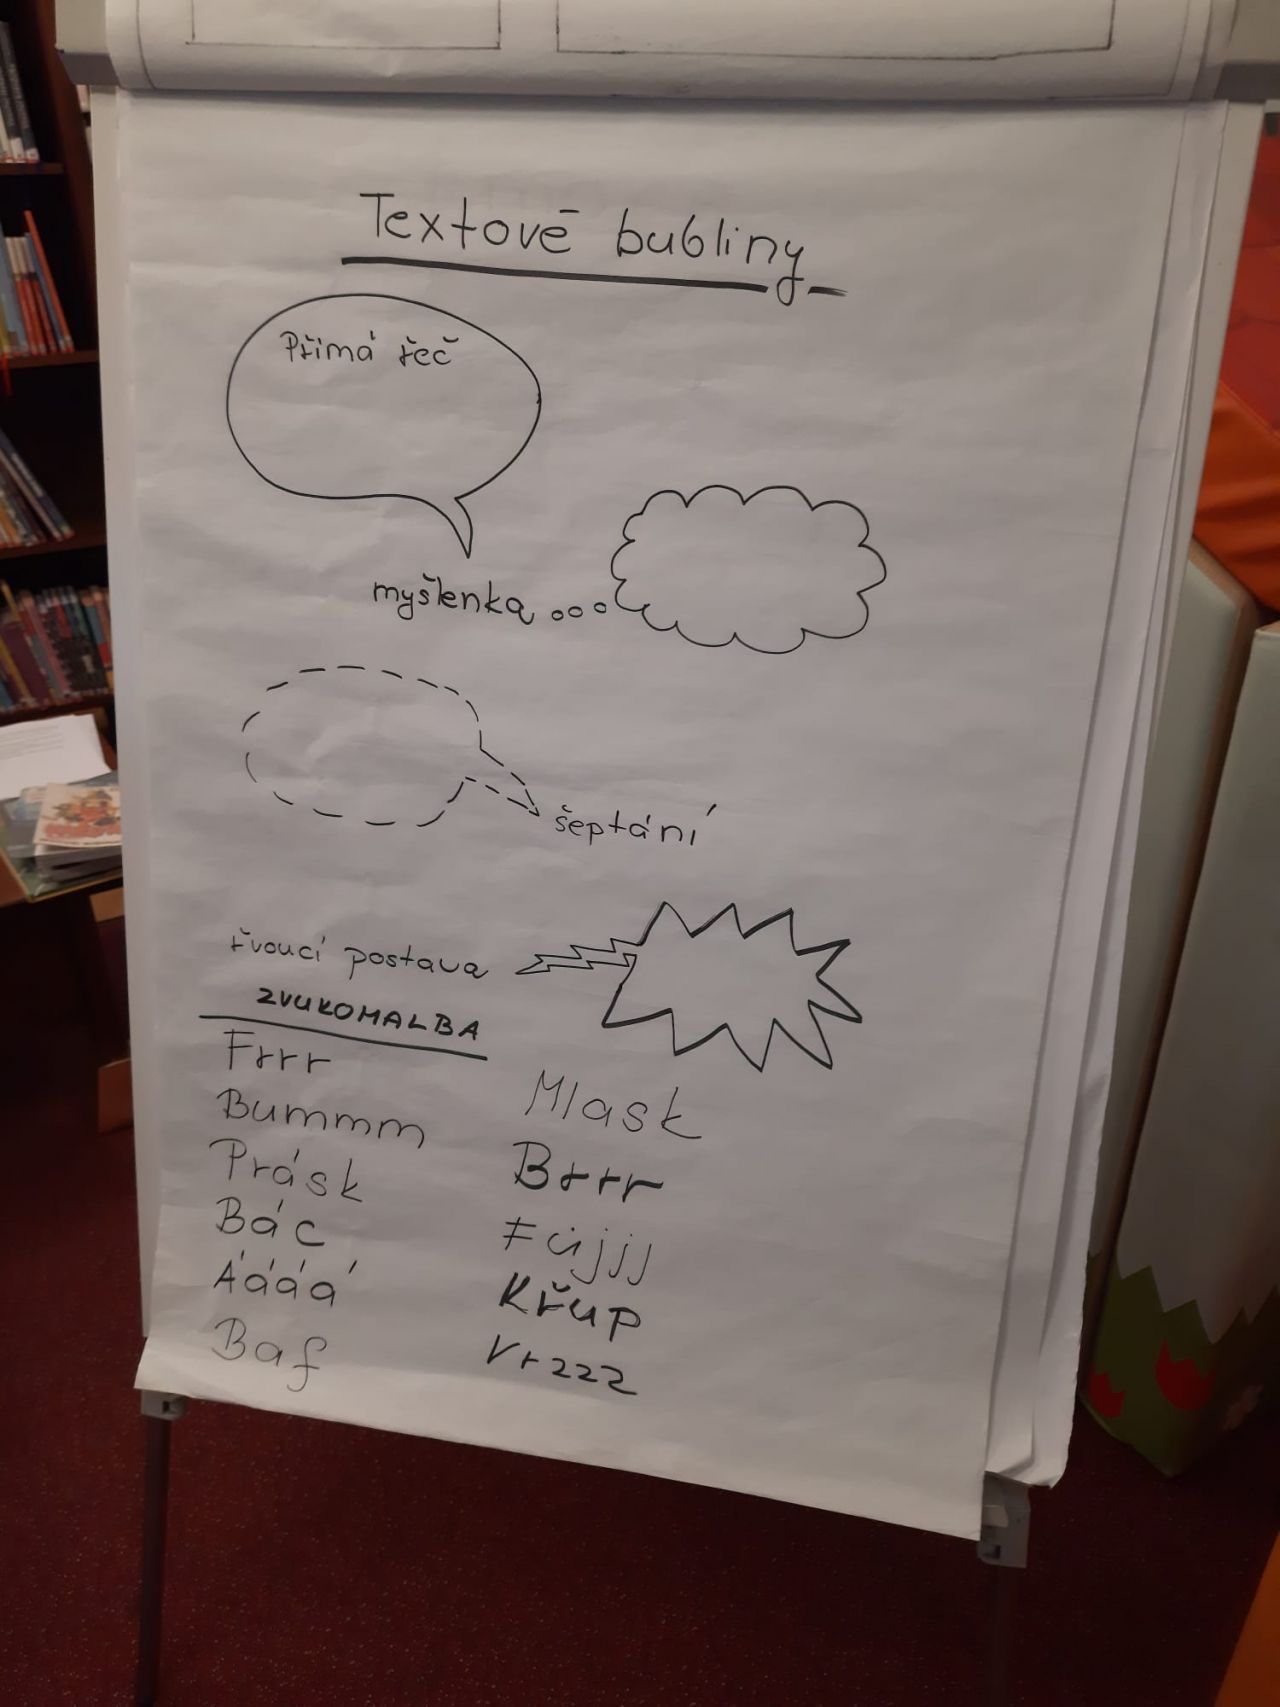 Textové bubliny
Přímá řeč
myšlenka
šeptání
řvoucí postava
ZVUKOMALBA
Frrr
Bummm
Prásk
Bác
Áááá
Baf
Mlask
Brrr
Fújjj
Křup
Vrzzz